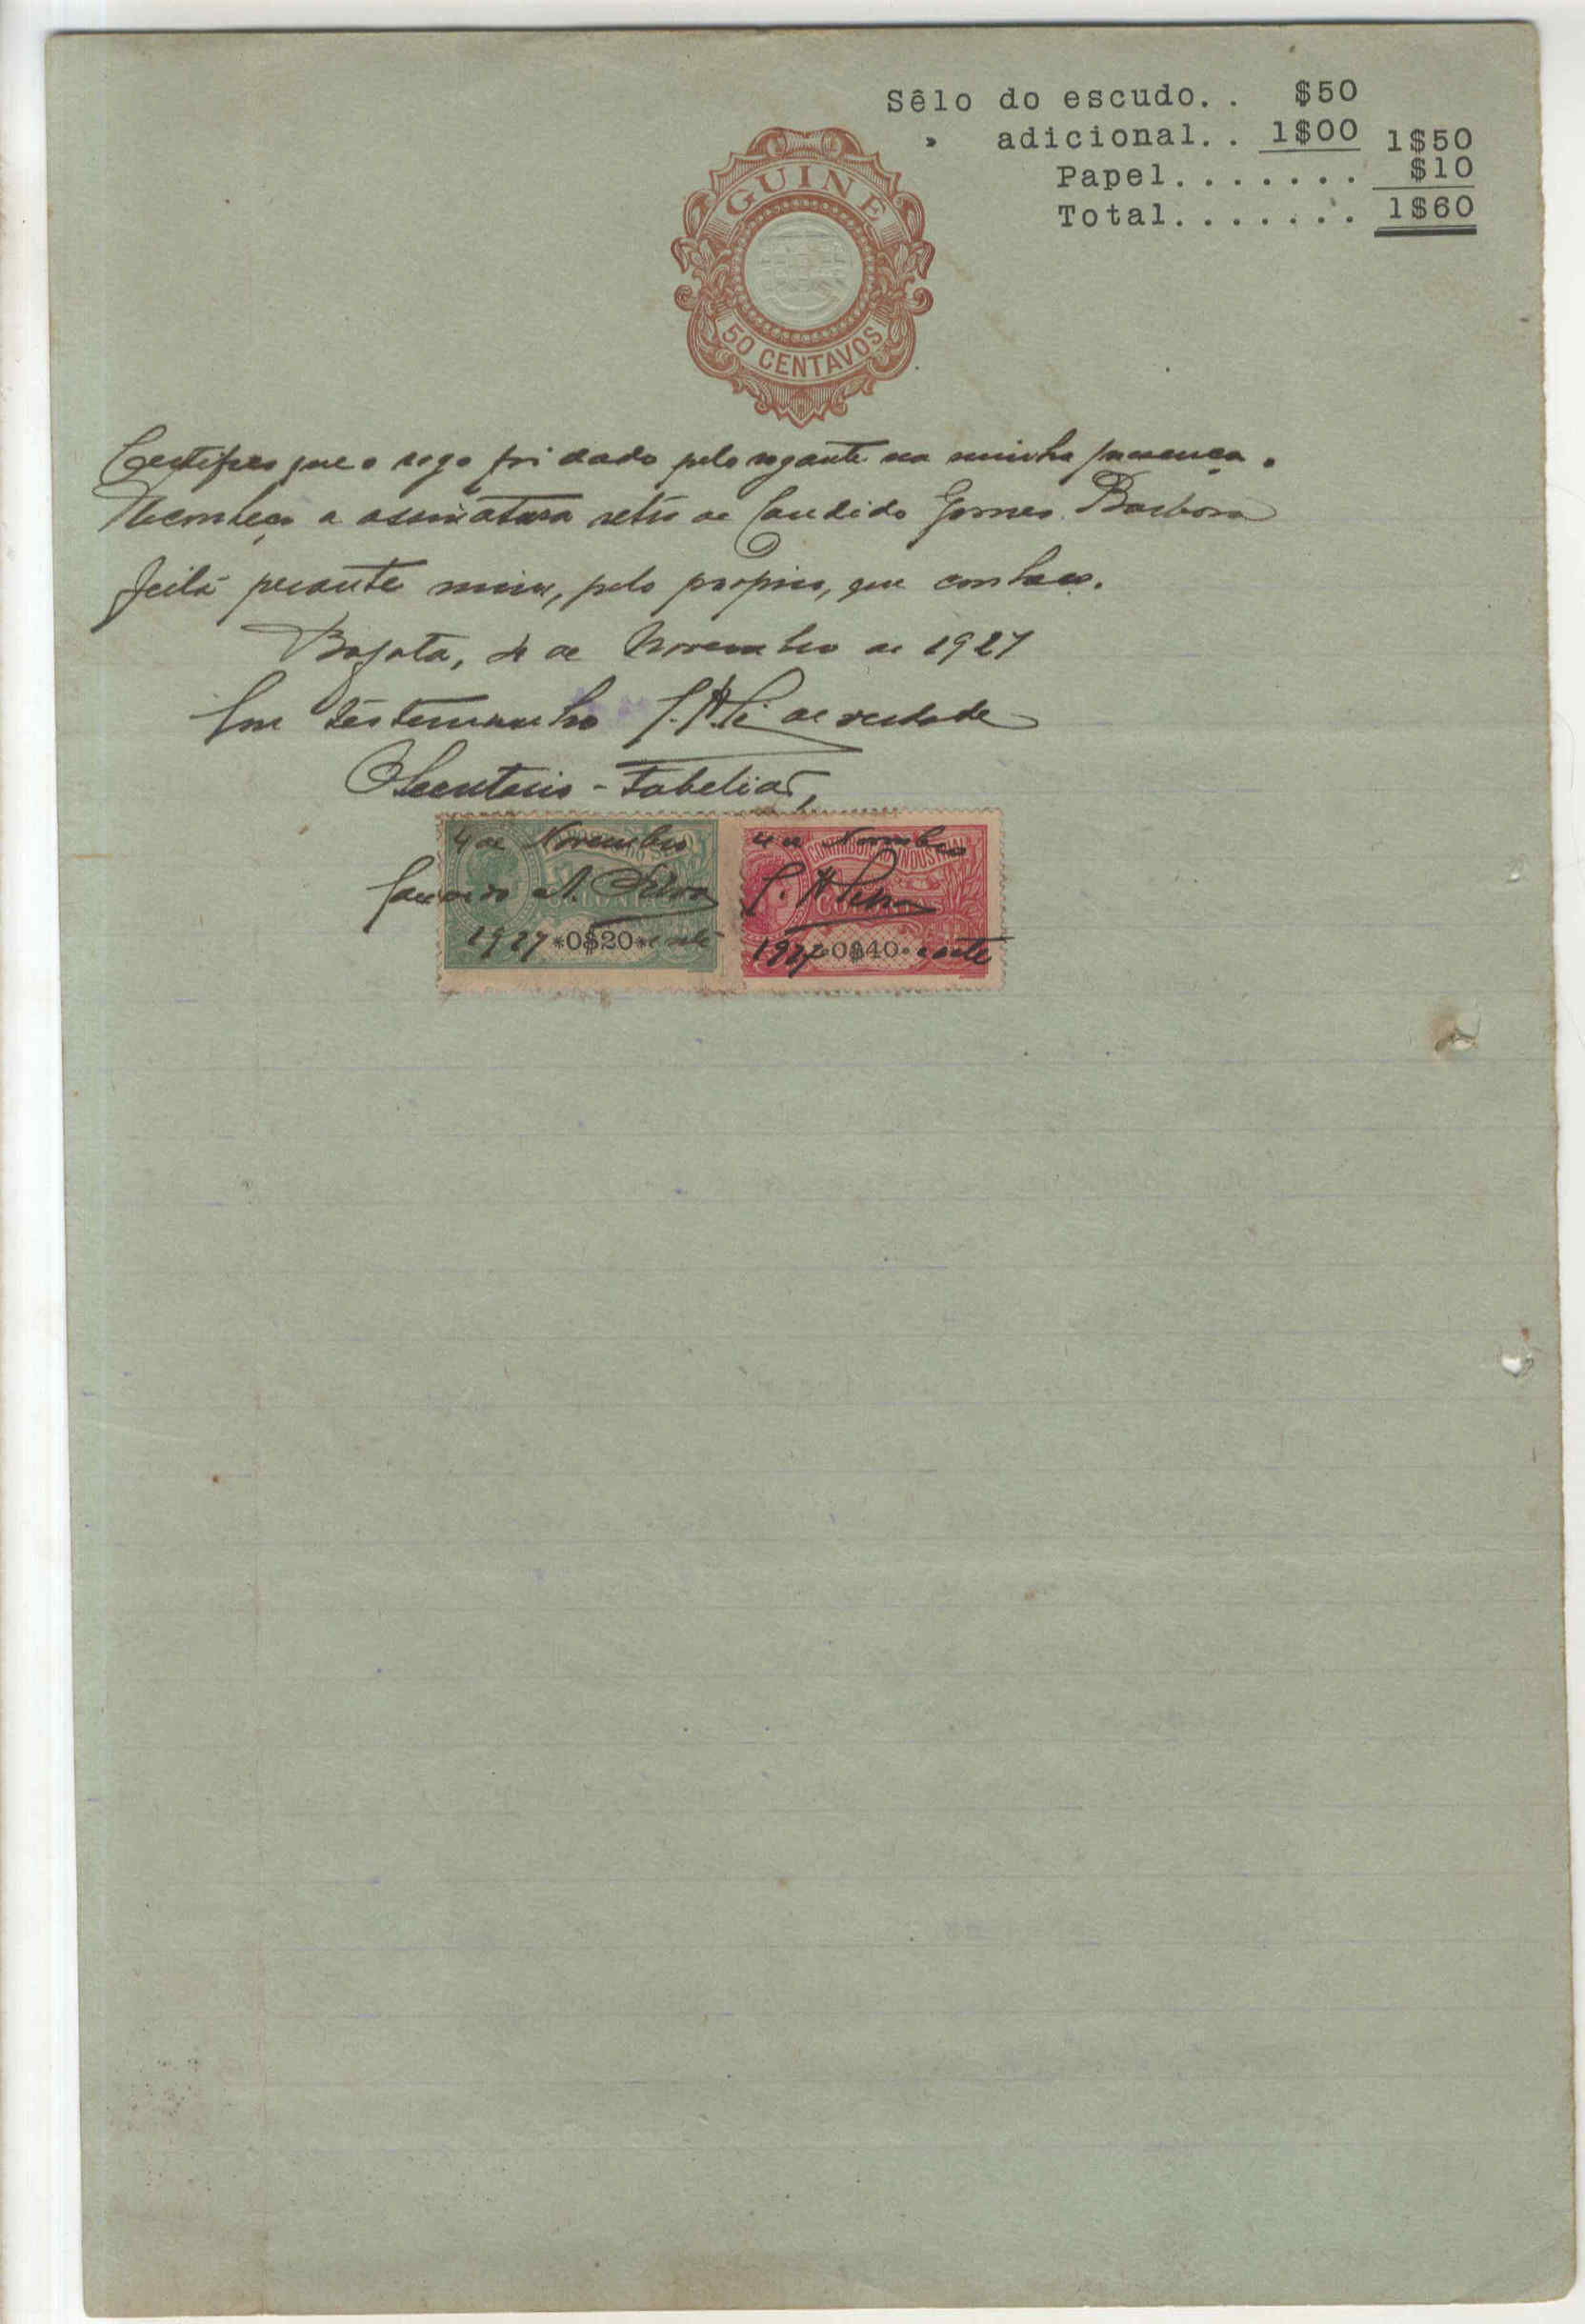 Sêlo do escudo. . $50
» adicional. . 1$00 1$50
Papel. . . . . . . $10
Total. . . . . . . 1$60
GUINE
50 CENTAVOS
Certifico que o rogo foi dado pelo rogante na minha presença.
Reconheço a assinatura retro de Candido Gomes Barbosa
feita perante mim, pelo proprio, que conheço.
Bafata, 4 de Novembro de 1927
Em testemunho de verdade
O Secretario-Tabelião,
4 de Novembro 4 de Novembro
CONTRIBUIÇÃO INDUSTRIAL
A. Silva
COLONIAS
1927 *0$20* 1927 *0$40*